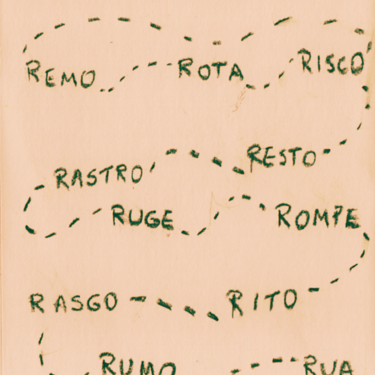 REMO ROTA RISCO
RASTRO RESTO
RUGE ROMPE
RASGO RITO
RUMO RUA